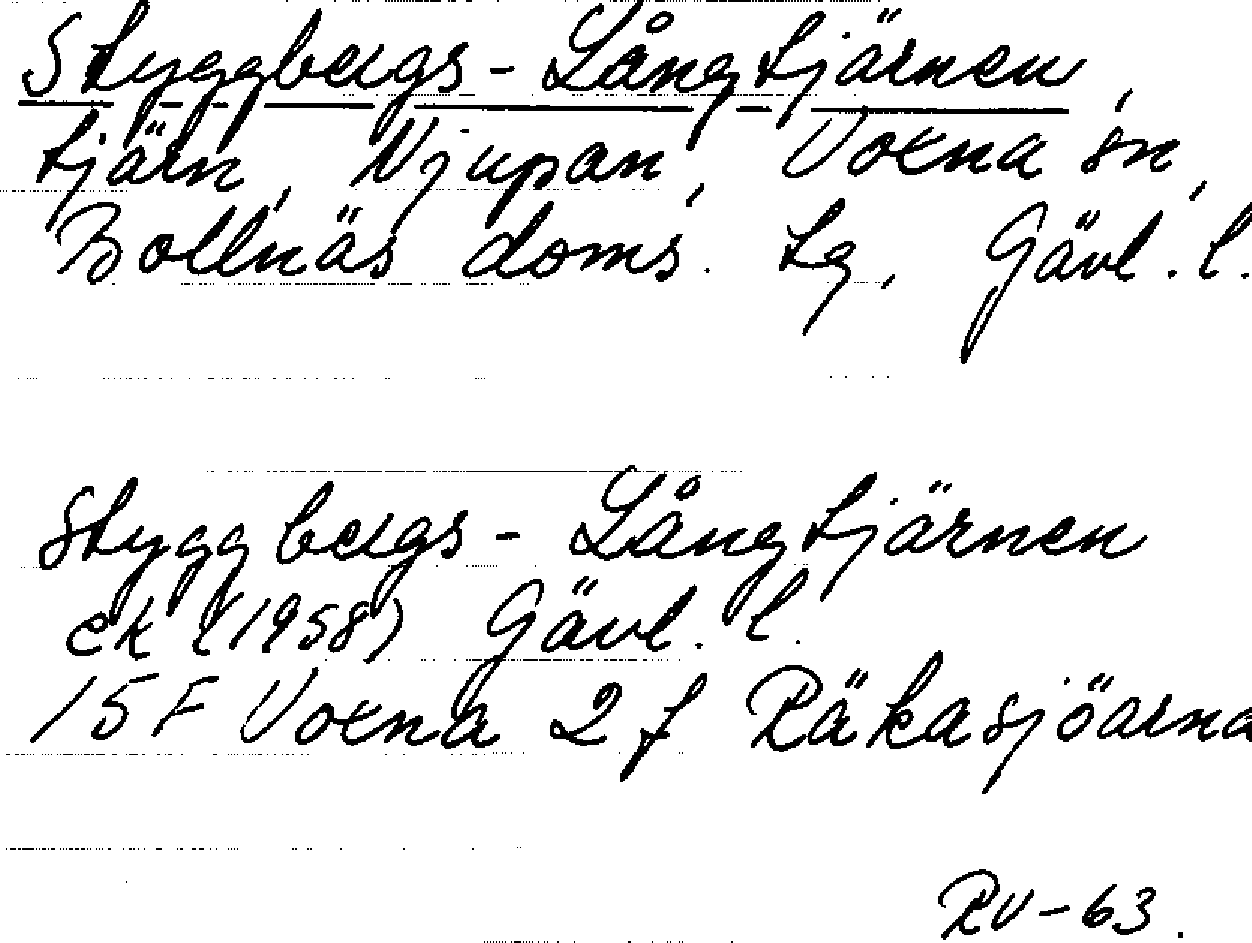 Styggbergs-Långtjärnen,
tjärn, Njupan, Voxna sn,
Bollnäs doms. tg, Gävl. l.
Styggbergs-Långtjärnen
ek (1958) Gävl. l.
15 F Voxna 2 f Räkasjöarna
RV-63.